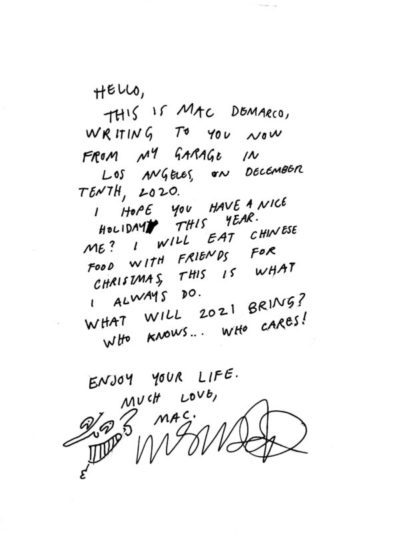 HELLO,
THIS IS MAC DEMARCO,
WRITING TO YOU NOW
FROM MY GARAGE IN
LOS ANGELES, ON DECEMBER
TENTH, 2020.
I HOPE YOU HAVE A NICE
HOLIDAY THIS YEAR.
ME? I WILL EAT CHINESE
FOOD WITH FRIENDS FOR
CHRISTMAS, THIS IS WHAT
I ALWAYS DO.
WHAT WILL 2021 BRING?
WHO KNOWS... WHO CARES!
ENJOY YOUR LIFE.
MUCH LOVE,
MAC.